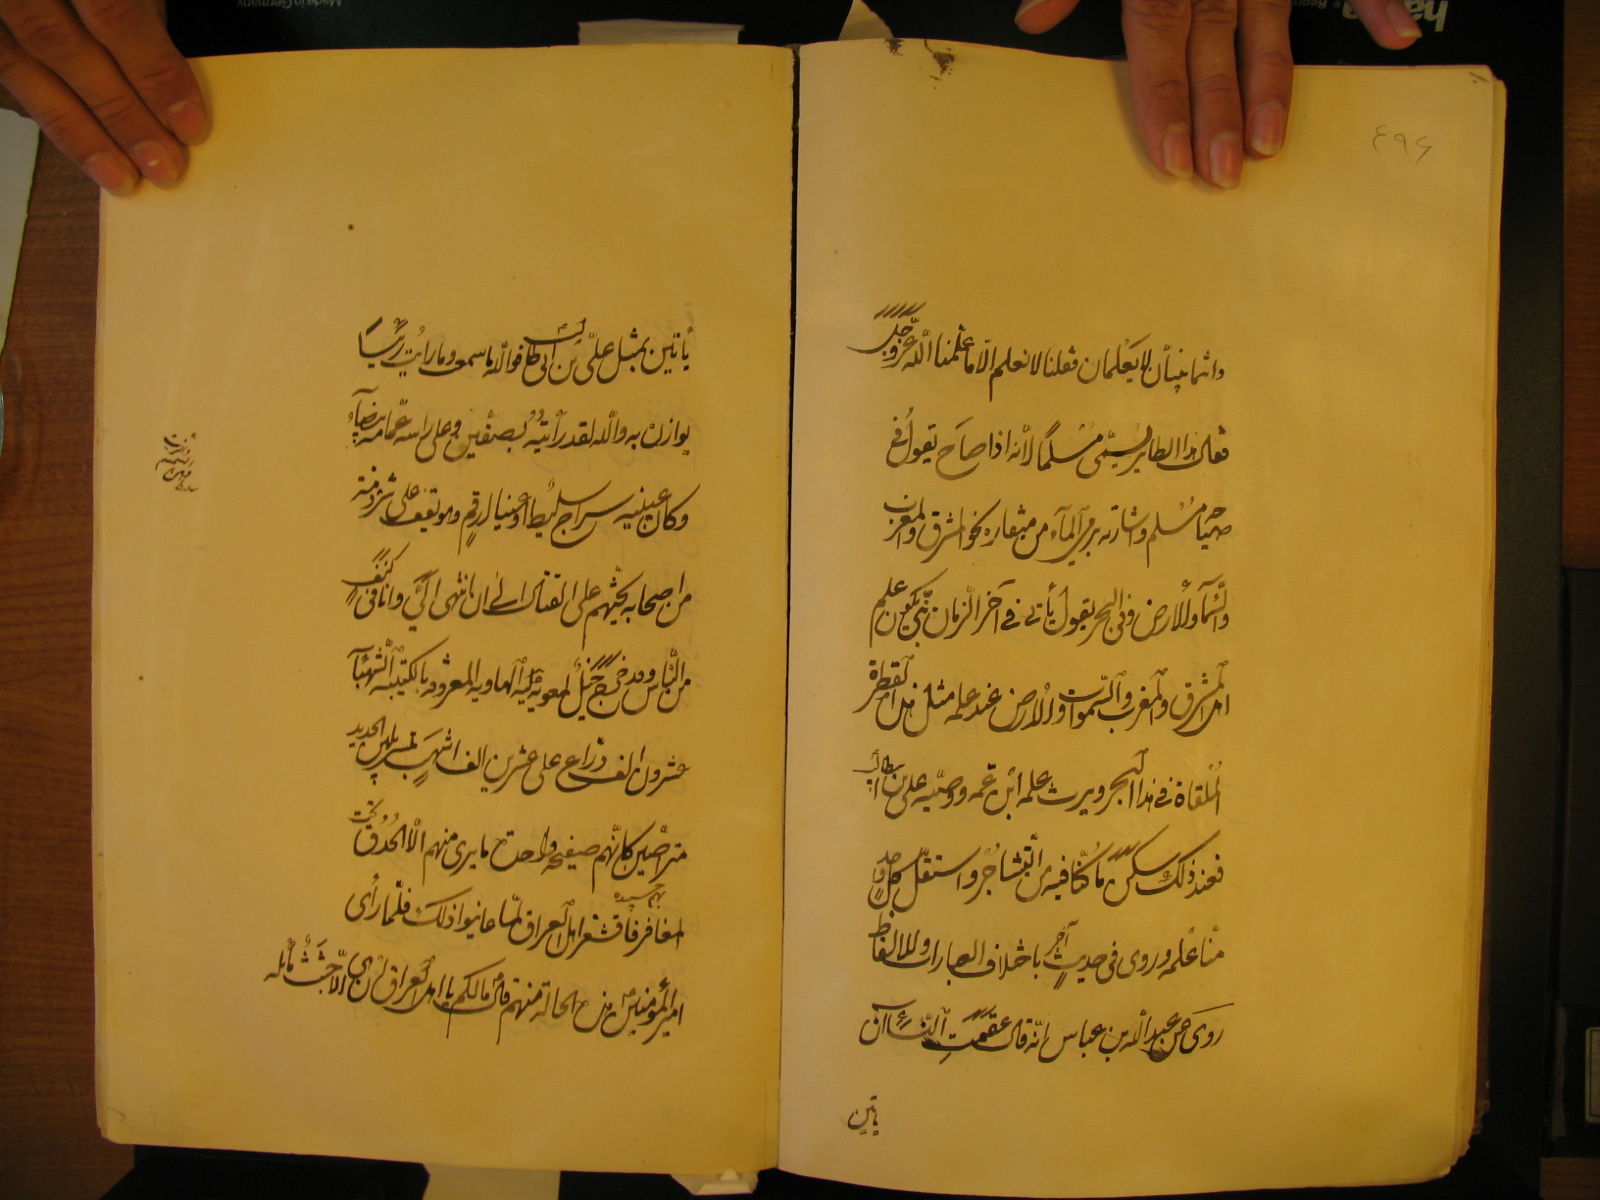 ٤٩٦
وانتما نبيّان لا يعلمان فقلنا لا نعلم الّا ما علّمنا اللّه عزّوجلّ
فقال هذا الطاير يسمّى مسلما لأنه اذا صاح يقول في
صياحه مسلم واشارته برمي المآء من منقاره نحو المشرق والمغرب
والسّمآء والأرض وفي البحر يقول يأتي في آخر الزمان نبيّ يكون علم
اهل المشرق والمغرب والسّموات والأرض عند علمه مثل هذه القطرة
الملقاة في هذا البحر ويرث علمه ابن عمّه ووصيّه علي بن ابيطالب
فعند ذلك سكن ما كنّا فيه من التشاجر واستقلّ كل واحد
منّا علمه وروى في حديث آخر باختلاف العبارات والالفاظ
روى عن عبد اللّه بن عباس انّه قال عقمت النّساء ان
ياتين
يأتين بمثل عليّ بن ابي طالب فواللّه ما سمعت وما رأيت رئيسا
يوازن به واللّه لقد رأيته بصفّين وعلى راسه عمامة بيضآء
وكأن عينيه سراج سليط او عينا ارقم وهو يقف على شرذمة
من اصحابه يحثّهم على القتال الى ان انتهى اليّ وانا في كنف
من النّاس وقد خرج خيل لمعوية المعروفة بالكتيبة الشهبآء
عشرون الف درّاع على عشرين الف اشهب متسربلين الحديد
متراصّين كانّهم صفيحة واحدة ما يرى منهم الّا الحدق تحت
المغافر فاقشعر اهل العراق لمّا عاينوا ذلك فلمّا رأى
امير المؤمنين هذه الحالة منهم قال مالكم يا اهل العراق ان هي الّا جثث ماثلة